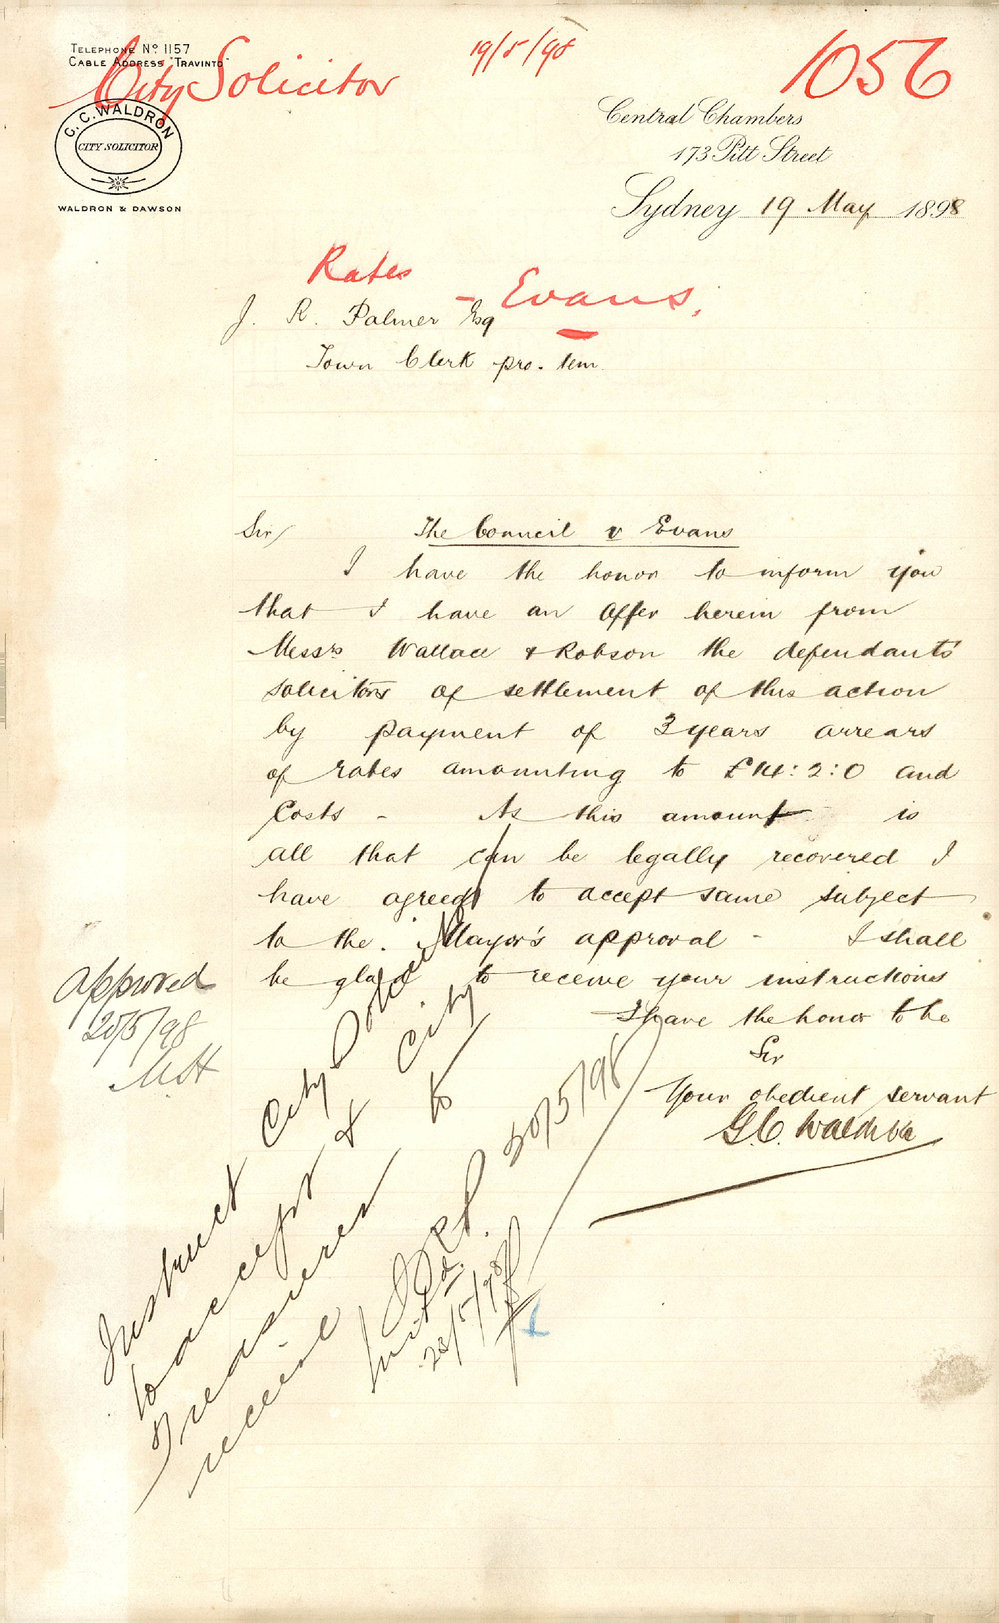 Telephone No 1157
Cable Address "Travinto"
City Solicitor
19/5/98
1056
G. C. WALDRON
CITY SOLICITOR
WALDRON & DAWSON
Central Chambers
173 Pitt Street
Sydney 19 May 1898
Rates
- Evans.
J. R. Palmer Esq
Town Clerk pro. tem.
Sir/ The Council v Evans
I have the honor to inform you
that I have an offer herein from
Messrs Wallace & Robson the defendants
solicitors of settlement of this action
by payment of 3 years arrears
of rates amounting to £14:2:0 and
Costs - As this amount is
all that can be legally recovered I
have agreed to accept same subject
to the Mayor's approval - I shall
be glad to receive your instructions
I have the honor to be
Sir
Your obedient servant
G. C. Waldron
Approved
20/5/98
Instruct City Solicitor
to accept & City
Treasurer to
receive
20/5/98
23/5/98